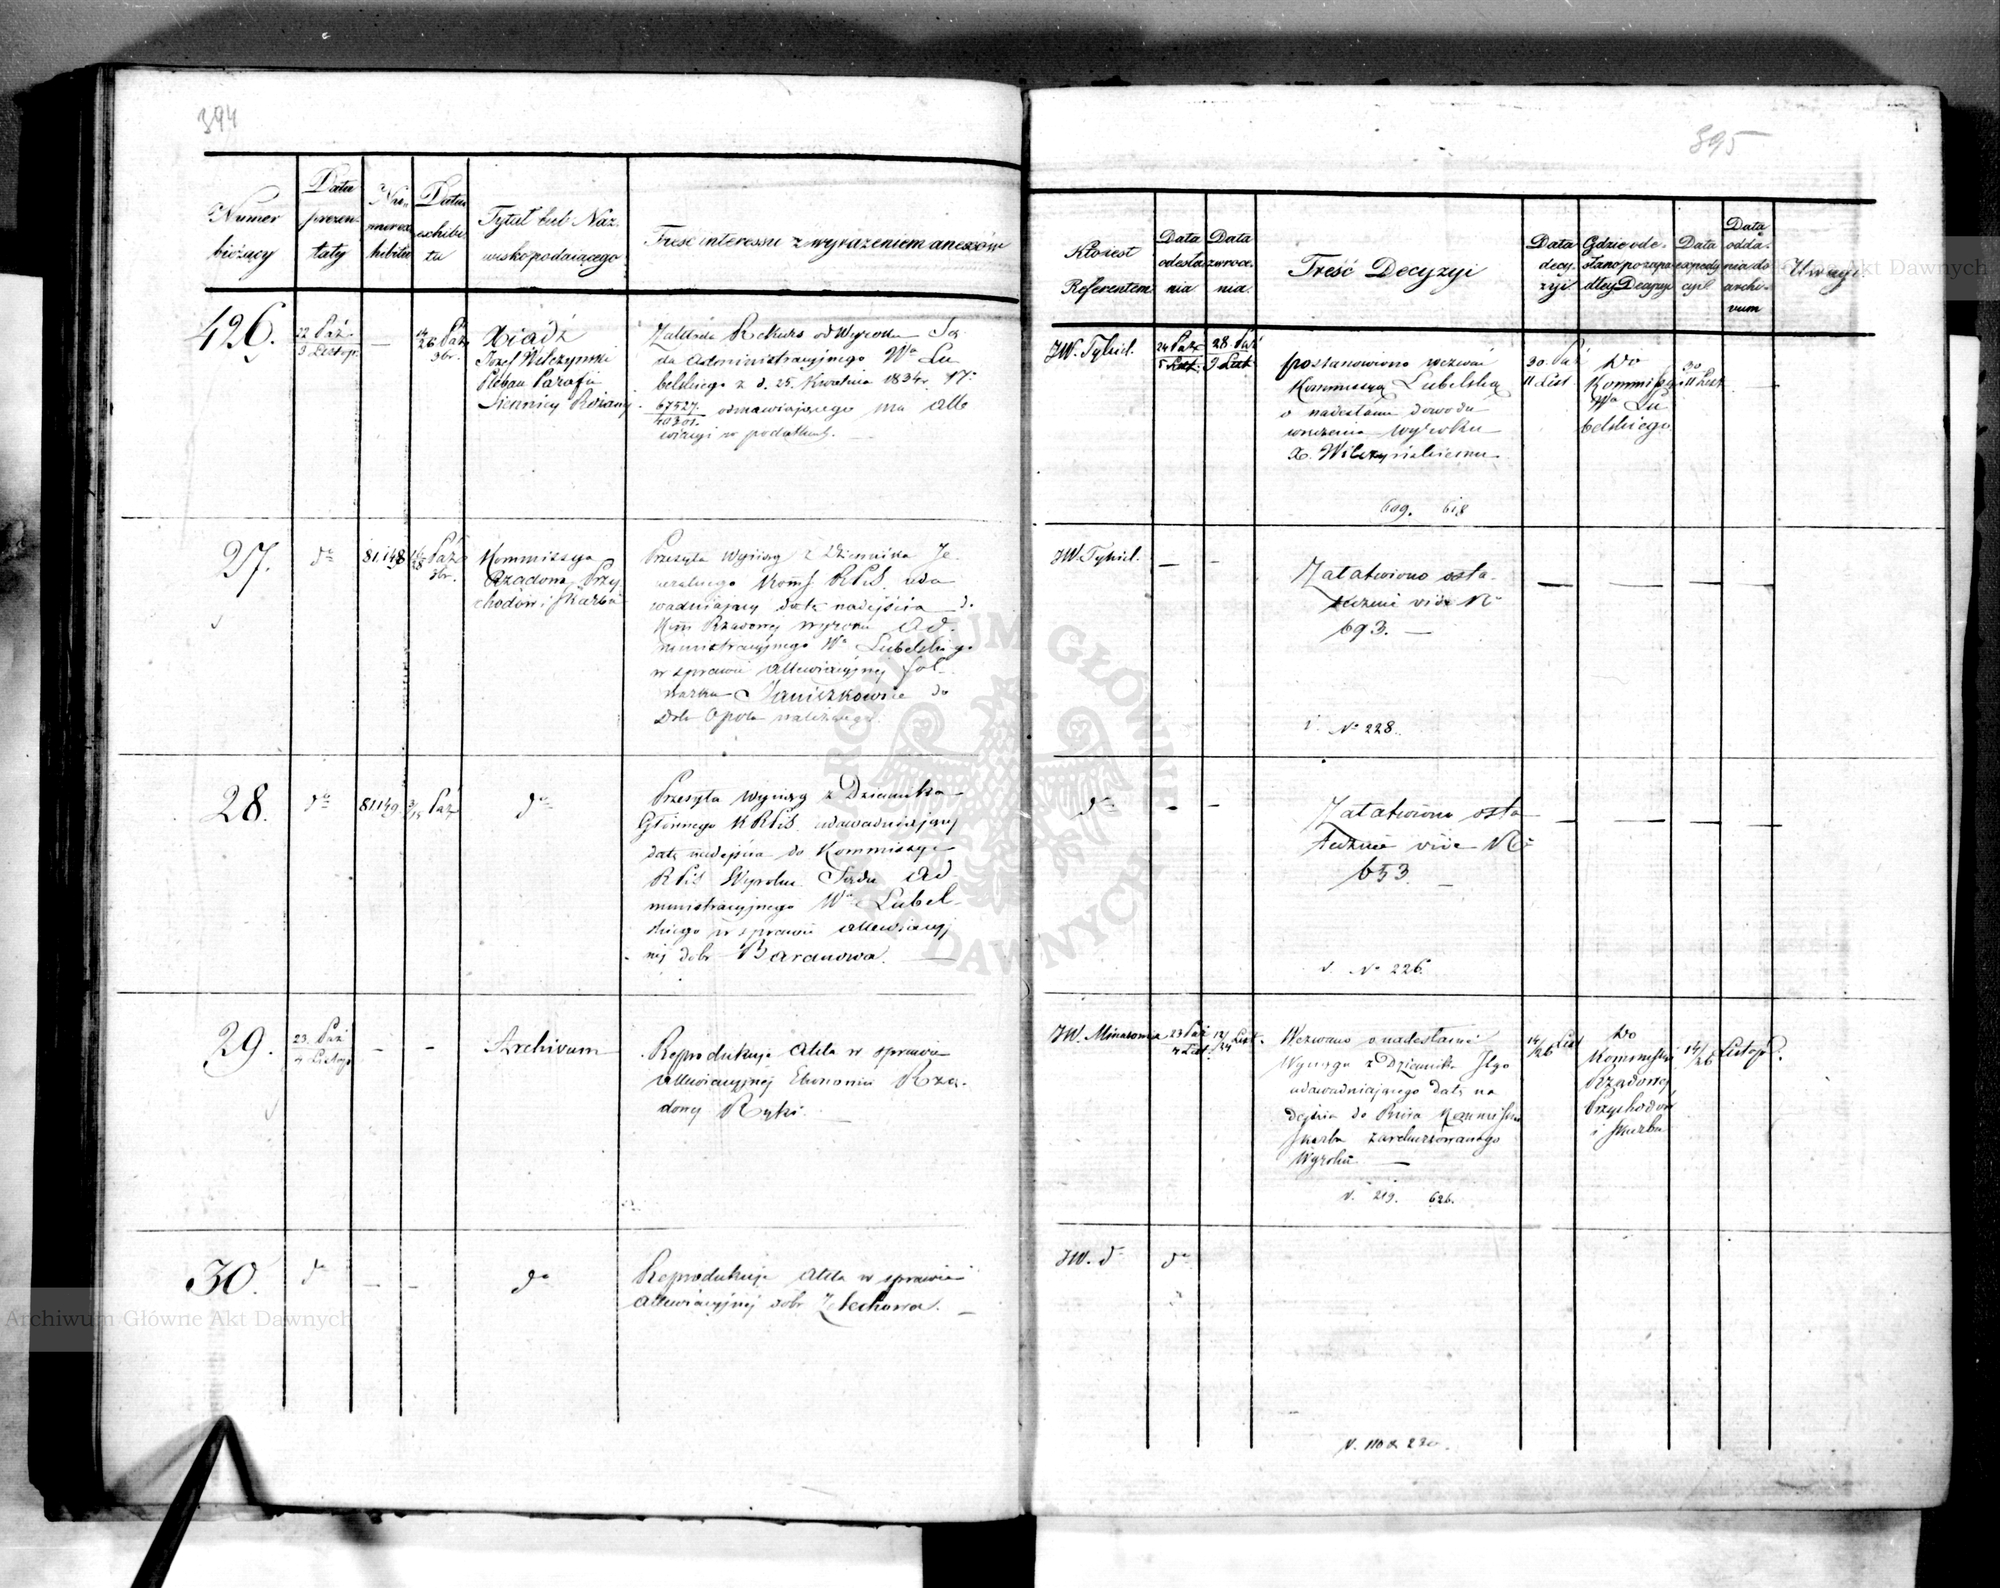 394
Numer bieżący
Data prezen- taty
Nu- mer ex- hibitu
Datum exhibi- tu
Tytuł lub Naz- wisko podaiącego
Treść interessu z wyrażeniem anexów
426.
22 Paź
3 Listop.
—
14/26 Paź
Xiądz
Józef Wilczyński
Pleban Parafii
Siennicy Różany
Zakłada Rekurs od Wyroku Są-
du Administracyjnego Wa Lu
belskiego z d. 25. Kwietnia 1834 r. No
67527
40301 odmawiającego mu alle
wiacyi w podatkach. —
27.
do
81,148
Paź
Kommissya
Rządowa Przy
chodów i Skarbu
Przesyła wyciąg z Dziennika Je-
neralnego Komś RPiS. uda
wadniający datę nadejścia do
Komś Rządowej wyroku Ad-
ministracyjnego Wa Lubelskiego
w sprawie allewiacyjnej fol-
warku Janiszkowice do
Dóbr Opola należącego.
28.
do
81,149
3/15 Paź
do
Przesyła Wyciąg z Dziennika
Głównego KRPiS. udawadniający
datę nadejścia do Kommissyi
RPiS Wyroku Sądu Ad-
ministracyjnego Wa Lubel-
skiego w sprawie allewiacyj
nej dóbr Baranowa. —
29.
23. Paź
4 Listop
-
-
Archivum
Reprodukuje Akta w sprawie
allewiacyjnej Ekonomii Rzą-
dowej Ryki. —
30.
do
-
-
do
Reprodukuje Akta w sprawie
allewiacyjnej dóbr Żelechowa. —
395
Kto iest Referentem
Data odesła nia
Data zwróce- nia.
Treść Decyzyi
Data decy- zyi.
Gdzie ode- słano po zapa- dłey Decyzyi
Data expedy cyi
Data odda- nia do archi- vum
Uwagi.
JW. Tykiel.
24 Paź
5 List.
28. Paź
9 List
postanowiono wezwać
Kommissyą Lubelską
o nadesłanie dowodu
wręczenia wyroku
X. Wilczyńskiemu
609. 618
30. Paź
11 List
Do
Kommissyi
Wa Lu
belskiego
30
11 List
—
JW. Tykiel.
—
—
Zatatwiono osta-
tecznie vide No
693. —
v. No 228.
do
-
-
Zatatwiono osta
tecznie vide No
653. —
v. No 226.
JW. Minasowicz
23 Paź
4 List.
12/24 List.
Wezwano o nadesłanie
Wyciągu z Dziennika Jlgo
udawadniającego datę na
dejścia do Biura Kommissyi
Skarbu zarekursowanego
Wyroku —
v. 219. 626.
14/26 List
Do
Kommissyi
Rządowej
Przychodów
i Skarbu
14/26 Listop.
JW. do
do
Archiwum Główne Akt Dawnych
ARCHIWUM GŁÓWNE AKT DAWNYCH
Archiwum Główne Akt Dawnych